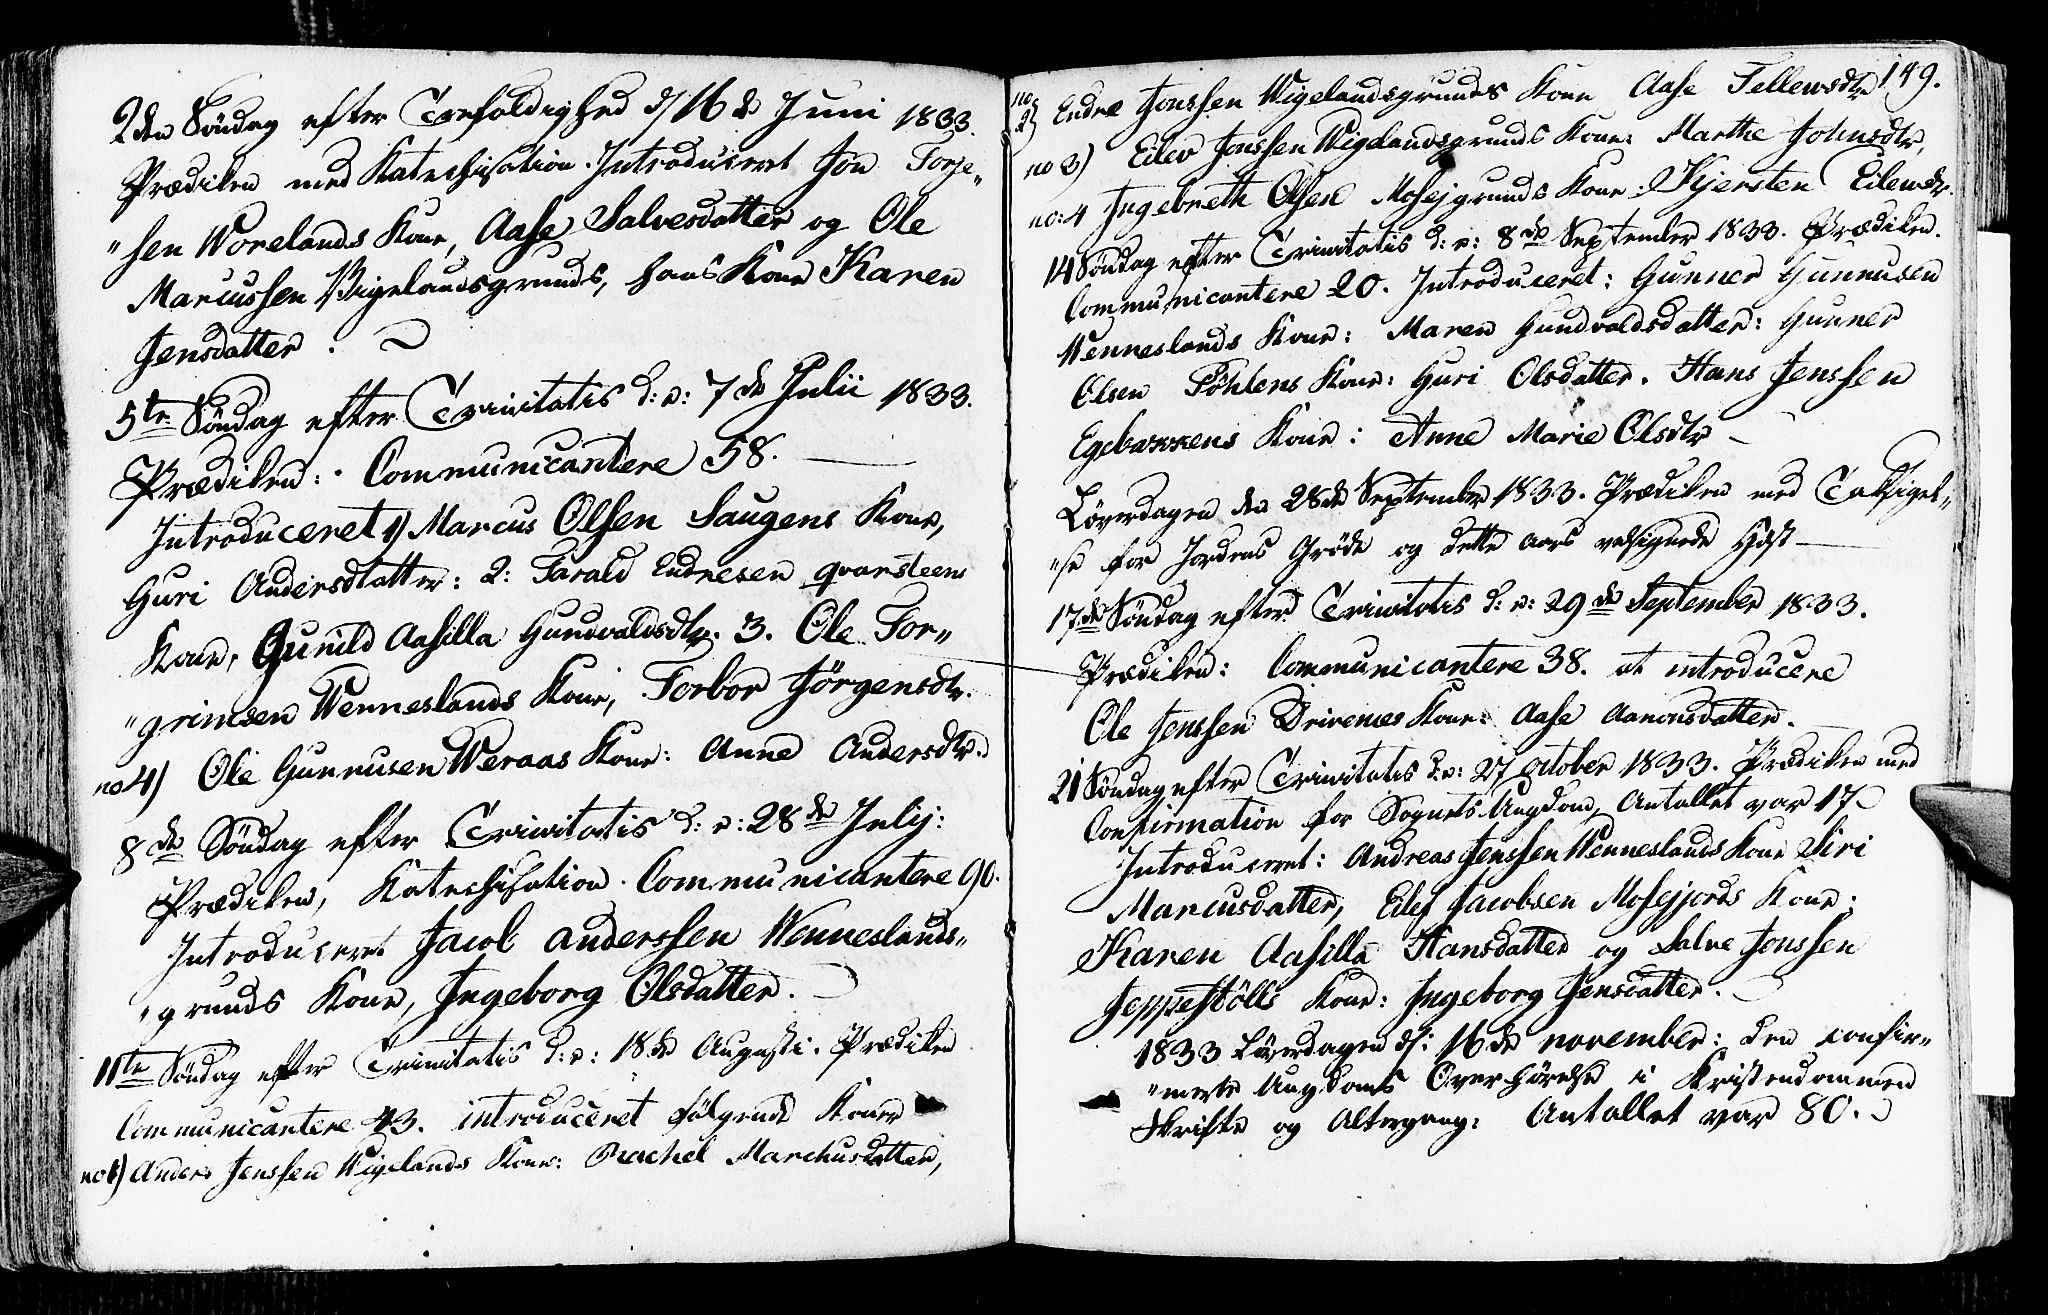 2den Söndag efter Trefoldighed d/ 16de Juni 1833.
Prædiken med Katechisation. Introduceret Jon Torje„
„sen Worelands Kone, Aase Salvesdatter og Ole
Marcussen Vigelandsgrunds, hans Kone Karen
Jensdatter.
5te Söndag efter Trinitatis d: e: 7de Julii 1833.
Prædiken: Communicantere 58.
Introduceret 1) Marcus Olsen Saugens Kone,
Guri Andersdatter: 2: Tarald Endresen qvarsteens
Kone, Gunild Aasilla Gundvaldsdtr. 3. Ole Tor„
„grimsen Wenneslands Kone, Torbor Jörgensdtr.
no 4) Ole Gunnusen Weraas Kone: Anne Andersdtr.
8de Söndag efter Trinitatis d: e: 28de Julij:
Prædiken, Katechisation. Communicantere 90.
Introduceret Jacob Anderssen Wenneslands„
„grunds Kone, Ingeborg Olsdatter.
11te Söndag efter Trinitatis d: e: 18de Augusti. Prædiken
Communicantere 43. introduceret fölgende Koner
no 1) Anders Jenssen Wigelands Kone: Rachel Marchusdatter,
149.
no 2) Endre Jonssen Wigelandsgrunds Kone Aase Tellewsdtr
no 3) Eilev Jonssen Wigelandsgrunds Kone: Marthe Johnsdtr,
no: 4 Ingebreth Olsen Mosejgrunds Kone: Kjersten Eilewsdr.
14 Söndag efter Trinitatis d: e: 8de September 1833. Prædiken.
Communicantere 20. Introduceret: Gunner Gunnusen
Wenneslands Kone: Maren Gundvaldsdatter: Gunner
Olsen Föhlens Kone: Guri Olsdatter. Hans Jenssen
Egebakkens Kone: Anne Marie Olsdtr
Löverdagen den 28de September 1833. Prædiken med Taksigel„
„se for Jordens Gröde og dette Aars velsignede Höst
17de Söndag efter Trinitatis d: e: 29de September 1833.
Prædiken: Communicantere 38. at introducere
Ole Jenssen Drivenes Kone: Aase Aanonsdatter.
21 Söndag efter Trinitatis d: e: 27 October 1833. Prædiken med
Confirmation for Sognets Ungdom, Antallet var 17
Introduceret: Andreas Jenssen Wenneslands Kone Siri
Marcusdatter, Eilef Jacobsen Mosejjords Kone:
Karen Aasilla Hansdatter og Salve Jonssen
Jeppestölls Kone: Ingeborg Jensdatter.
1833 Löverdagen d/: 16de november: den confir„
„merte Ungdoms Overhörelse i Kristendommen
Skrifte og Altergang: Antallet var 80.